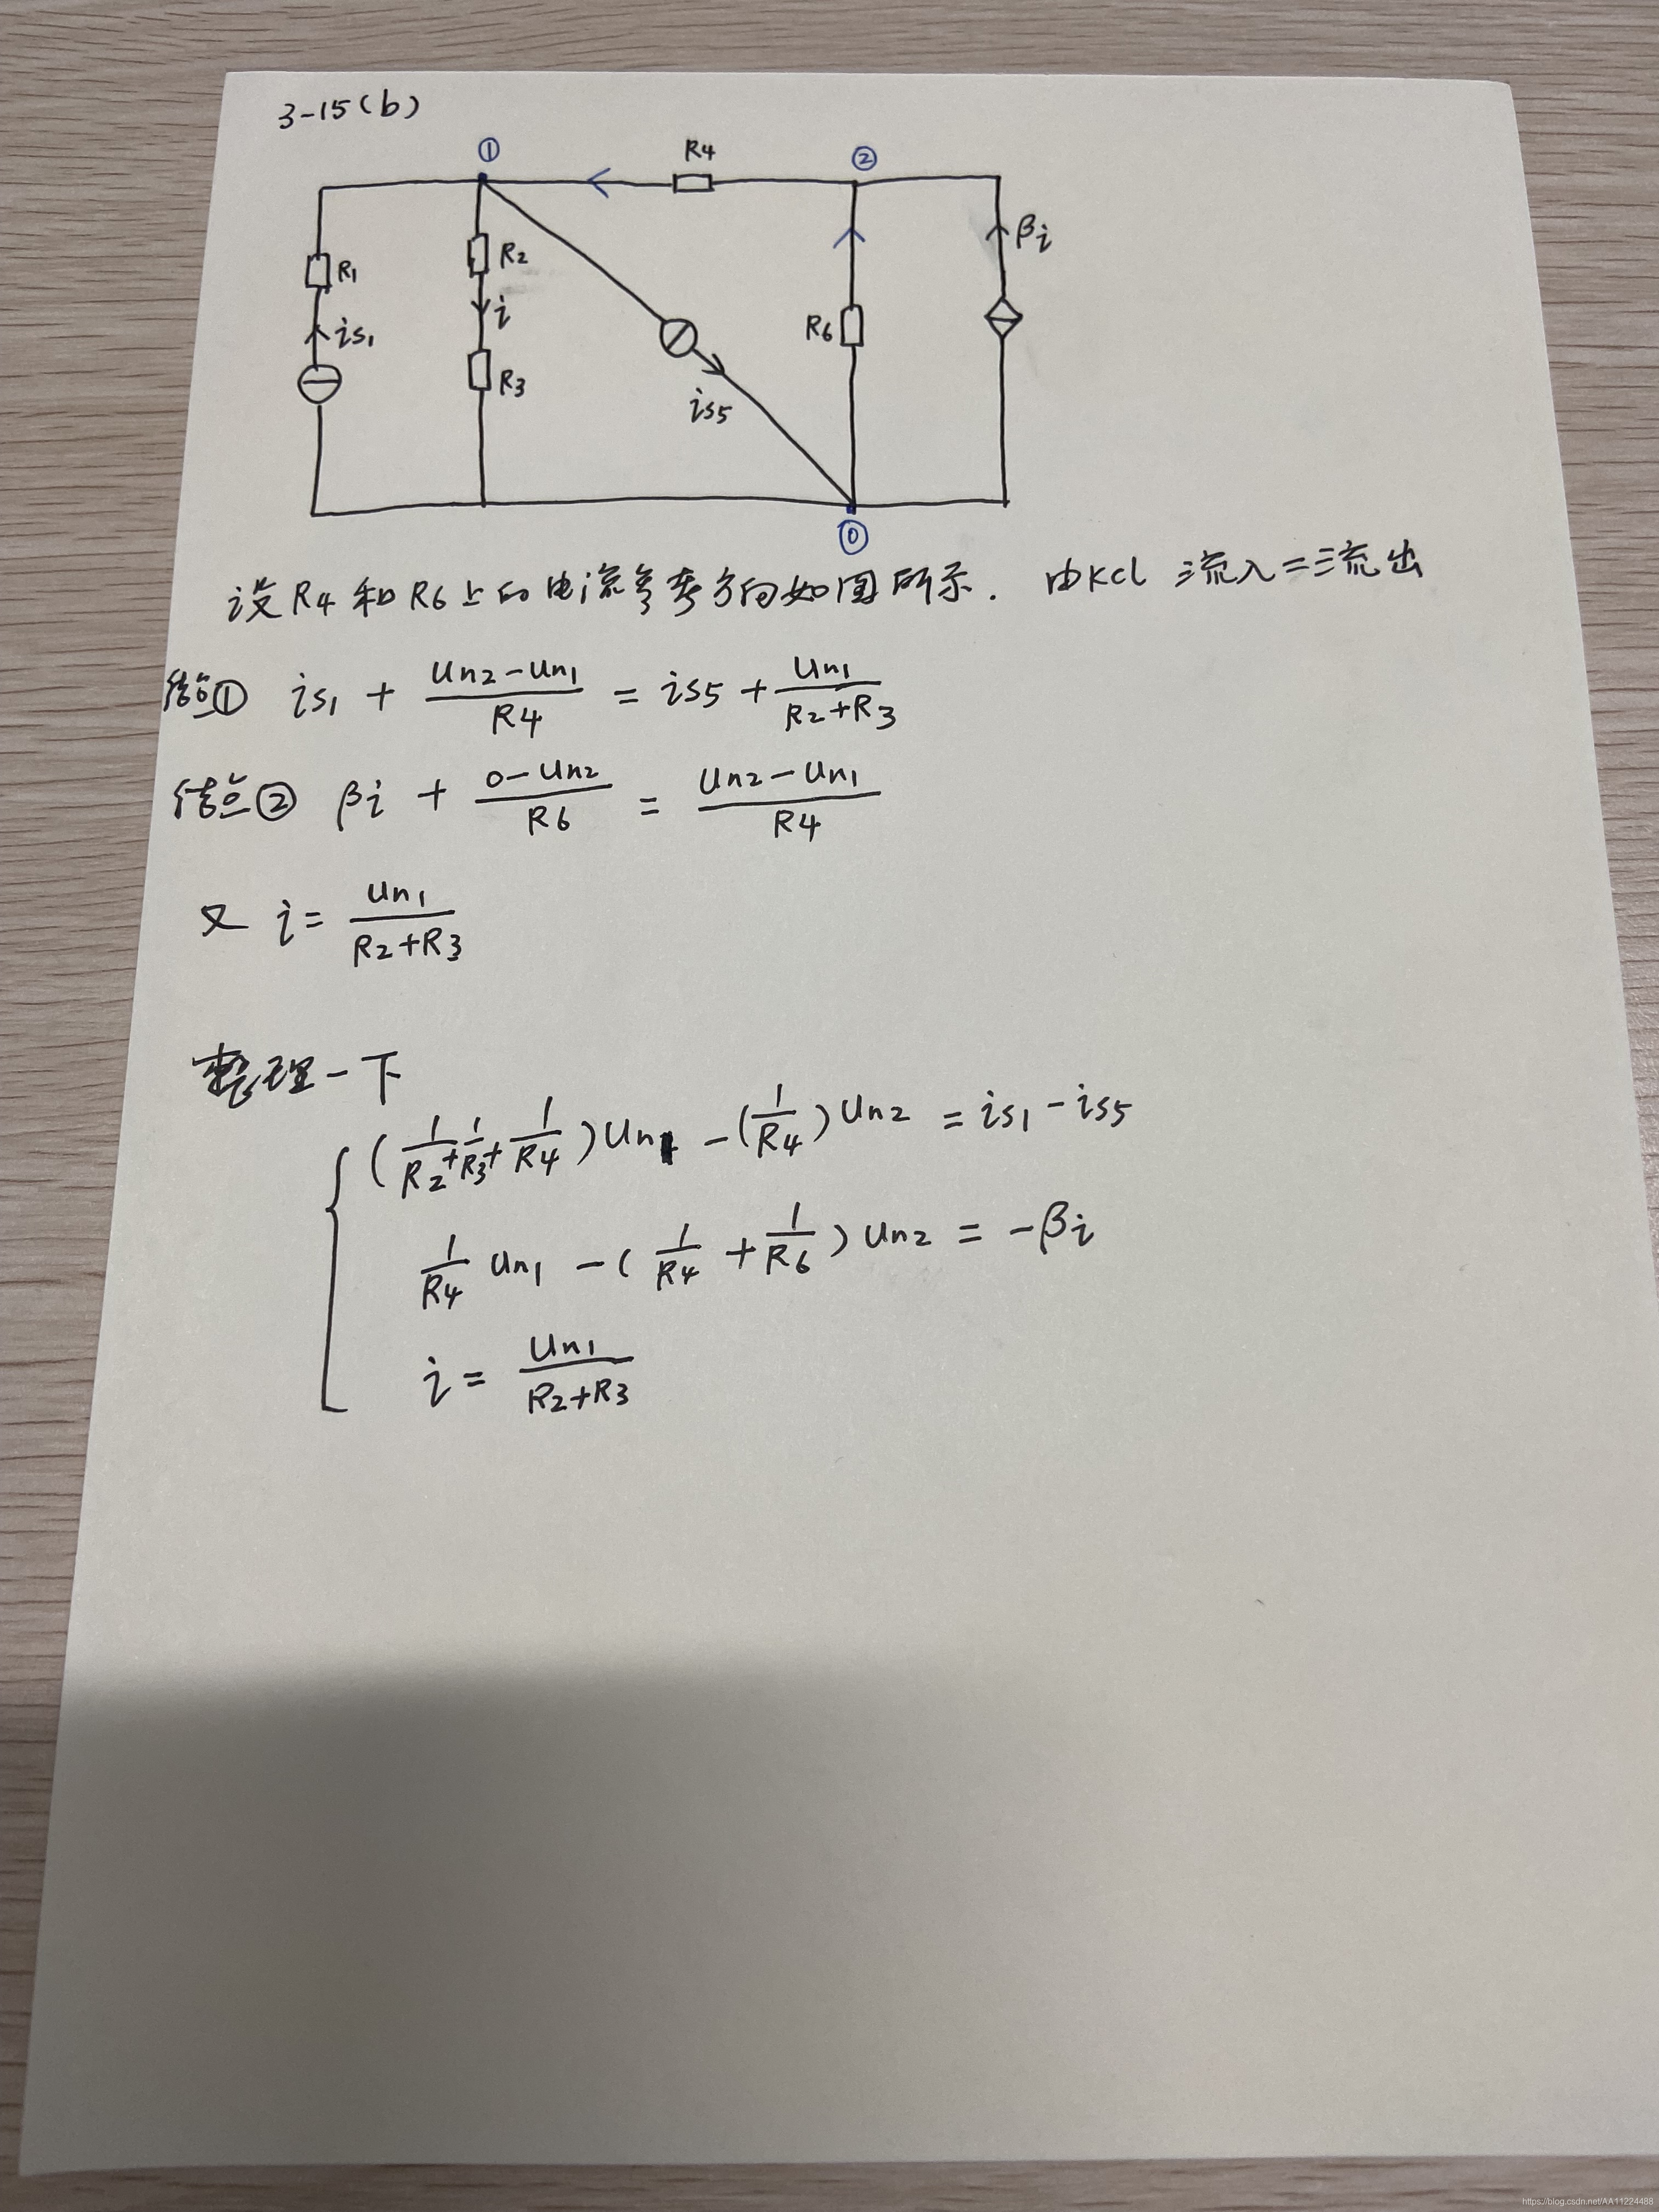 3-15(b)
① R4 ②
R1 R2 βi
is1 i R6
R3 is5
⓪
设R4和R6上的电流参考方向如图所示. 由KCL Σ流入=Σ流出
结点① is1 + (un2-un1)/R4 = is5 + un1/(R2+R3)
结点② βi + (0-un2)/R6 = (un2-un1)/R4
又 i = un1/(R2+R3)
整理一下
(1/R2+1/R3+1/R4)un1 - (1/R4)un2 = is1-is5
1/R4 un1 - (1/R4+1/R6)un2 = -βi
i = un1/(R2+R3)
https://blog.csdn.net/AA11224488